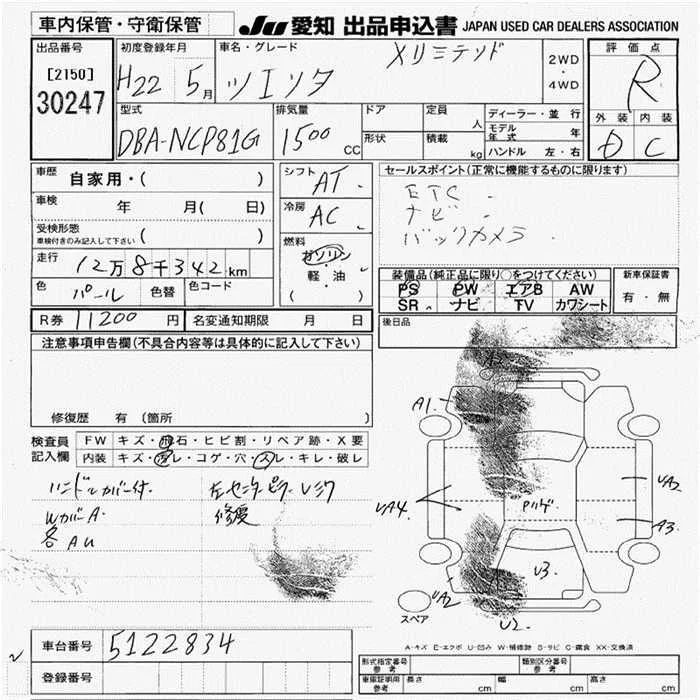 車内保管・守衛保管
JU 愛知 出品申込書 JAPAN USED CAR DEALERS ASSOCIATION
出品番号
[2150]
30247
初度登録年月
H22 5月
車名・グレード
Xリミテッド
2WD
・
4WD
評価点
R
外装 内装
D C
型式
DBA-NCP81G
排気量
1500 CC
ドア
形状
定員 人
積載 kg
ディーラー・並行
モデル年式 年
ハンドル 左・右
車歴
自家用・( )
車検
年 月( 日)
受検形態
車検付きのみ記入して下さい ( )
走行
12万8千342km
色 パール 色替 色コード
シフト AT
冷房 AC
燃料
ガソリン
・
軽・油
( )
セールスポイント(正常に機能するものに限ります)
ETC
ナビ
バックカメラ
装備品(純正品に限り○をつけてください)
PS PW エアB AW
SR ナビ TV カワシート
新車保証書
有・無
R券 11200円 名変通知期限 月 日
後日品
注意事項申告欄(不具合内容等は具体的に記入して下さい)
修復歴 有 〔箇所
検査員
記入欄
FW キズ・飛石・ヒビ割・リペア跡・X要
内装 キズ・汚レ・コゲ・穴・スレ・キレ・破レ
ハンドルカバー付
左センターピラー
WカバーA
修復
各AU
A1
UA4
Pハゲ
UA2
A3
U3
UA2
U2
スペア
A-キズ E-エクボ U-凹み W-補修跡 S-サビ C-腐食 XX-交換済
車台番号 5122834
登録番号
形式指定番号
参考
類別区分番号
参考
車庫証明用
参考
長さ cm 幅 cm 高さ cm